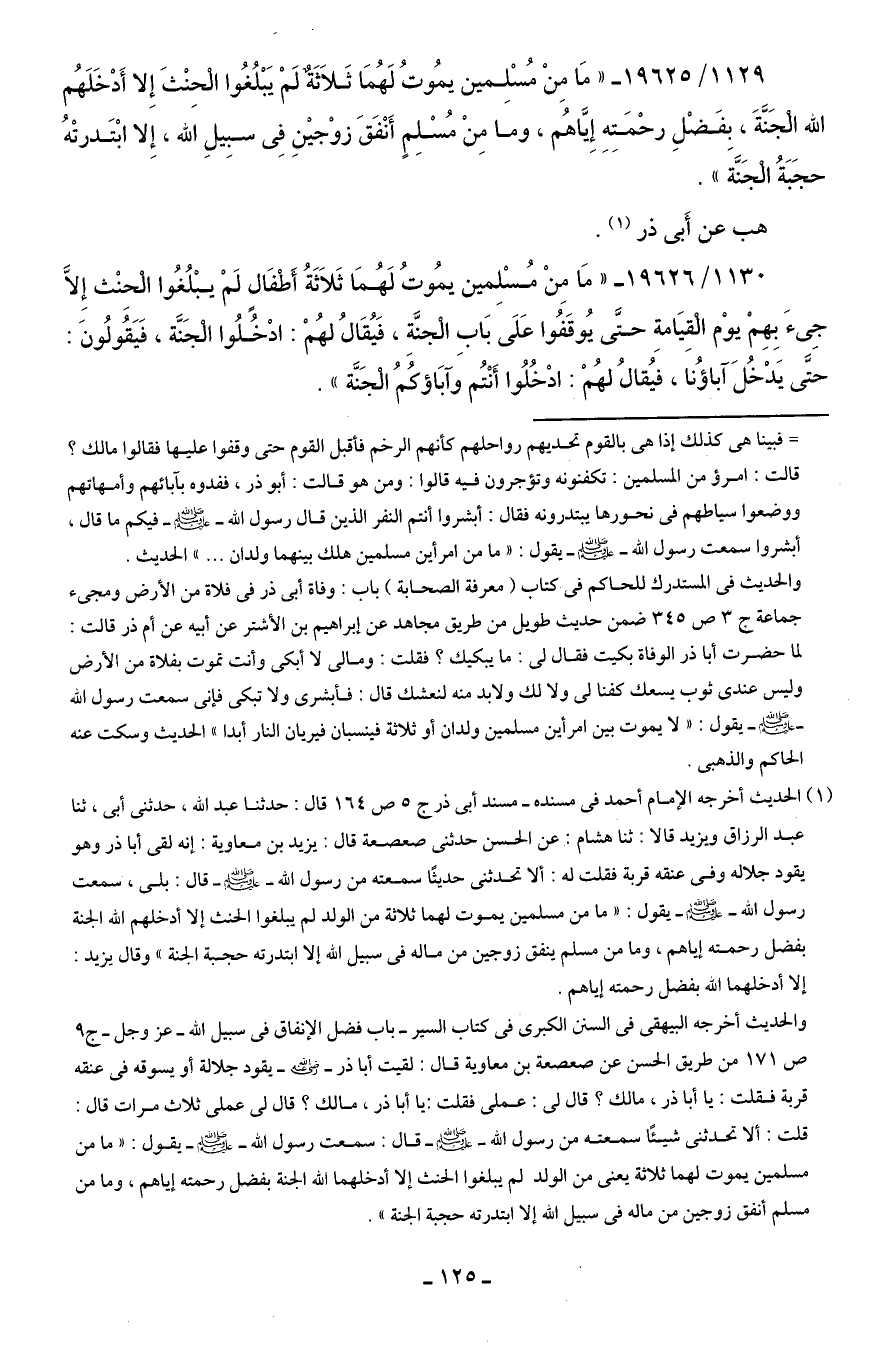 ١١٢٩/ ١٩٦٢٥ـ « مَا مِنْ مُسْلِـمين يموتُ لَهُمَا ثَـلاَثَةٌ لَمْ يَبْلُغُوا الْحِنْثَ إِلا أَدْخَلَهُم
الله الْجَنَّةَ ، بِفَـضْلِ رحْمَـتِهِ إِيَّاهُم ، ومـا مِنْ مُسْلِمٍ أَنْفَقَ زوْجَيْنِ فِى سـبِيلِ الله ، إِلا ابْتَـدرتْهُ
حجبَةُ الْجَنَّة » .
هب عن أَبى ذر (١) .
١١٣٠/ ١٩٦٢٦ـ « مَا مِنْ مُـسْلِمين يموتُ لَهُـمَا ثَلاَثَةُ أَطْفَالٍ لَمْ يـبْلُغُوا الْحِنْث إِلاَّ
جِىءَ بِهِمْ يوْم الْقِيَامةِ حـتَّى يُوقَفُوا عَلَى بَابِ الْجنَّةِ ، فَيُقَالُ لهُمْ : ادْخُـلُوا الْجَنَّة ، فَيَقُولُونَ :
حتَّى يَدْخُلَ آبَاؤُنا ، فيُقالُ لهُمْ : ادْخُلُوا أَنْتُم وآبَاؤكُمُ الْجَنَّة » .
= فبينا هى كذلك إذا هى بالقوم تخديهم رواحلهم كأنهم الرخم فأقبل القوم حتى وقفوا عليـها فقالوا مالك ؟
قالت : امرؤ من المسلمين : تكفنونه وتؤجرون فيه قالوا : ومن هو قـالت : أبو ذر ، ففدوه بآبائهم وأمـهاتهم
ووضعوا سياطهم فى نحـورها يبتدرونه فقال : أبشروا أنتم النفر الذين قـال رسول الله ـ ﷺ ـ فيكم ما قال ،
أبشروا سمعت رسول الله ـ ﷺ ـ يقول : « ما من امرأين مسلمين هلك بينهما ولدان ... » الحديث .
والحديث فى المستدرك للحـاكم فى كتاب ( معرفة الصحـابة ) باب : وفاة أبى ذر فى فلاة من الأرض ومجىء
جماعة ج ٣ ص ٣٤٥ ضمن حديث طويل من طريق مجاهد عن إبراهيم بن الأشتر عن أبيه عن أم ذر قالت :
لما حضـرت أبا ذر الوفاة بكيت فقـال لى : ما يبكيك ؟ فقلت : ومـالى لا أبكى وأنت تموت بفلاة من الأرض
وليس عندى ثوب يسعك كفنا لى ولا لك ولابد منه لنعشك قال : فـأبشرى ولا تبكى فإنى سمعت رسول الله
ـ ﷺ ـ يقول : « لا يموت بين امرأين مسلمين ولدان أو ثلاثة فينسبان فيريان النار أبدا » الحديث وسكت عنه
الحاكم والذهبى .
(١) الحديث أخرجه الإمـام أحمد فى مسنده ـ مسند أبى ذر ج ٥ ص ١٦٤ قال : حدثنـا عبد الله ، حدثنى أبى ، ثنا
عبـد الرزاق ويزيد قالا : ثنا هشام : عن الحسن حدثنى صعصعة قال : يزيد بن مـعاوية : إنه لقى أبا ذر وهو
يقود جلاله وفـى عنقه قربة فقلت له : ألا تحدثنى حديثًا سمـعته من رسول الله ـ ﷺ ـ قال : بلـى ، سمعت
رسول الله ـ ﷺ ـ يقول : « ما من مسلمين يمـوت لهما ثلاثة من الولد لم يبلغوا الحنث إلا أدخلهم الله الجنة
بفضل رحمـته إياهم ، وما من مسلم ينفق زوجين من مـاله فى سبيل الله إلا ابتدرته حجـبة الجنة » وقال يزيد :
إلا أدخلهما الله بفضل رحمته إياهم .
والحديث أخرجه البيهقى فى السنن الكبرى فى كتاب السير ـ باب فضل الإنفاق فى سبيل الله ـ عز وجل ـ ج٩
ص ١٧١ من طريق الحسن عن صعصعة بن معاوية قـال : لقيت أبا ذر ـ رضي الله عنه ـ يقود جلالة أو يسوقه فى عنقه
قربة فـقلت : يا أبا ذر ، مالك ؟ قال لى : عـملى فقلت :يا أبا ذر ، مـالك ؟ قال لى عملى ثلاث مـرات قال :
قلت : ألا تحدثنى شيئًا سمـعتـه من رسول الله ـ ﷺ ـ قـال : سمـعت رسول الله ـ ﷺ ـ يقـول : « ما من
مسلمين يموت لهما ثلاثة يعنى من الولد لم يبلغوا الحنث إلا أدخلهما الله الجنة بفضل رحمته إياهم ، وما من
مسلم أنفق زوجين من ماله فى سبيل الله إلا ابتدرته حجبة الجنة » .
ـ ١٢٥ ـ